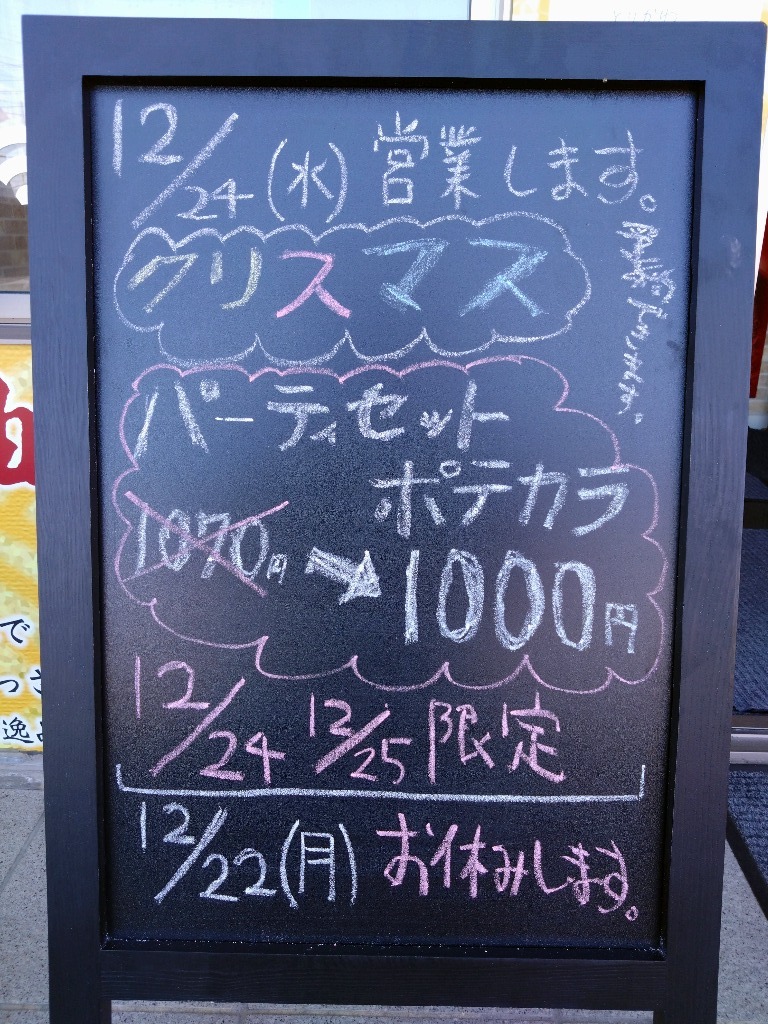 12/24(水)営業します。
クリスマス
パーティセット
ポテカラ
1070円
1000円
12/24 12/25 限定
12/22(月)お休みします。
で
っさ